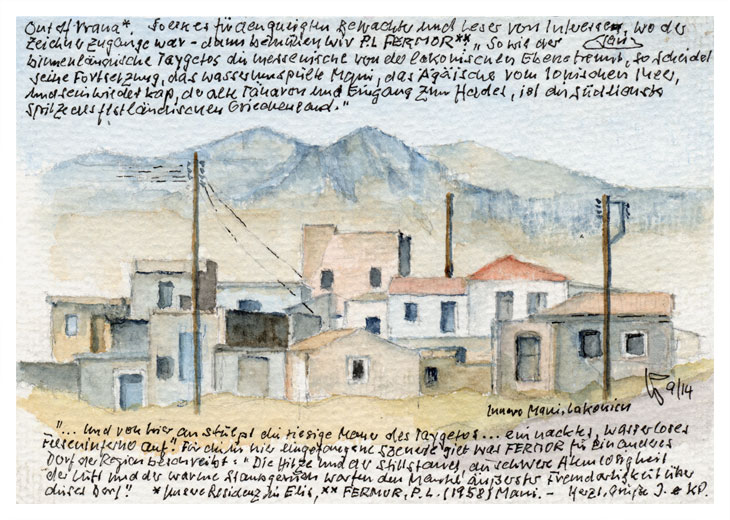 Out of Vrana*. So es es für den geneigten Betrachter und Leser von Interesse, wo der
Zeichner zugange war - dann bemühen wir P.L FERMOR**: „So wie der
binnenländische Taygetos die messenische von der lakonischen Ebene trennt, so scheidet
seine Fortsetzung, das wasserumspülte Mani, das Ägäische vom Ionischen Meer,
und sein wildes Kap, das alte Tänaron und Eingang zum Hades, ist die südlichste
Spitze des festländischen Griechenland."
Innere Mani, Lakonien
9/14
"... und von hier an stülpt die riesige Mauer des Taygetos ... ein nacktes, wasserloses
Felseninferno auf." Für die hier eingefangene Szenerie gilt was FERMOR für ein anderes
Dorf der Region beschreibt: "Die Hitze und der Stillstand, die schwere Atemlosigkeit
der Luft und der warme warfen den Mantel äußerster Fremdartigkeit über
dieses Dorf." *Unsere Residenz in Elis, ** FERMOR, P.L. (1958) Mani. - Herzl. Grüße J. & KP.